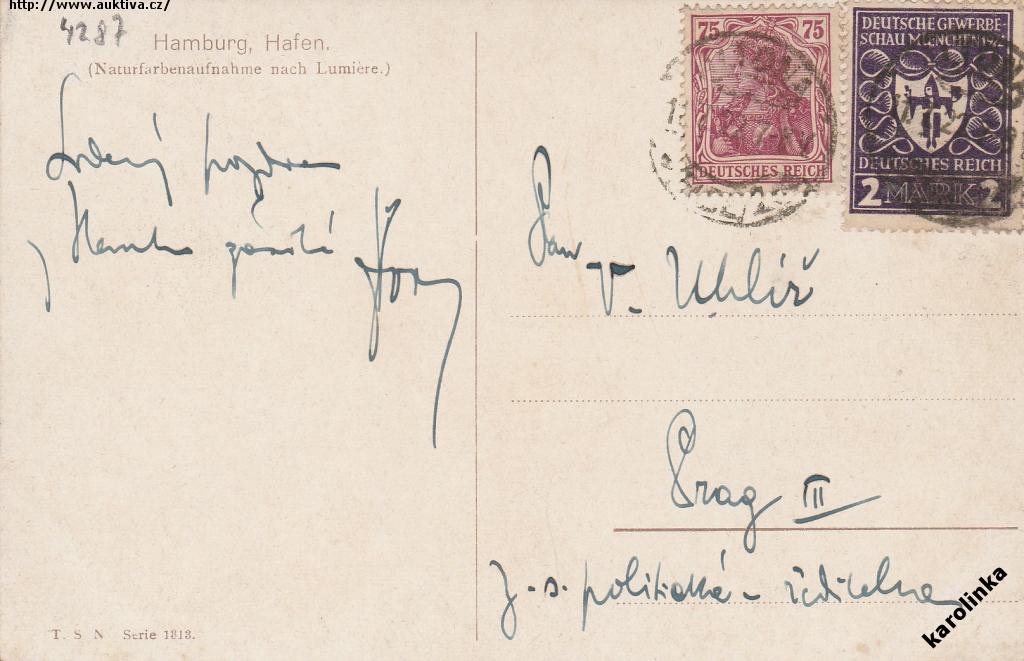 http://www.auktiva.cz/
4287
Hamburg, Hafen.
(Naturfarbenaufnahme nach Lumière.)
Srdečný pozdrav
z Hamburku zasílá
75 75
DEUTSCHES REICH
DEUTSCHE GEWERBE-
SCHAU MUENCHEN 1922
DEUTSCHES REICH
2 MARK 2
Pan
V. Uhlíř
Prag III
z. s. politická - ředitelna
T. S. N. Serie 1813.
karolinka